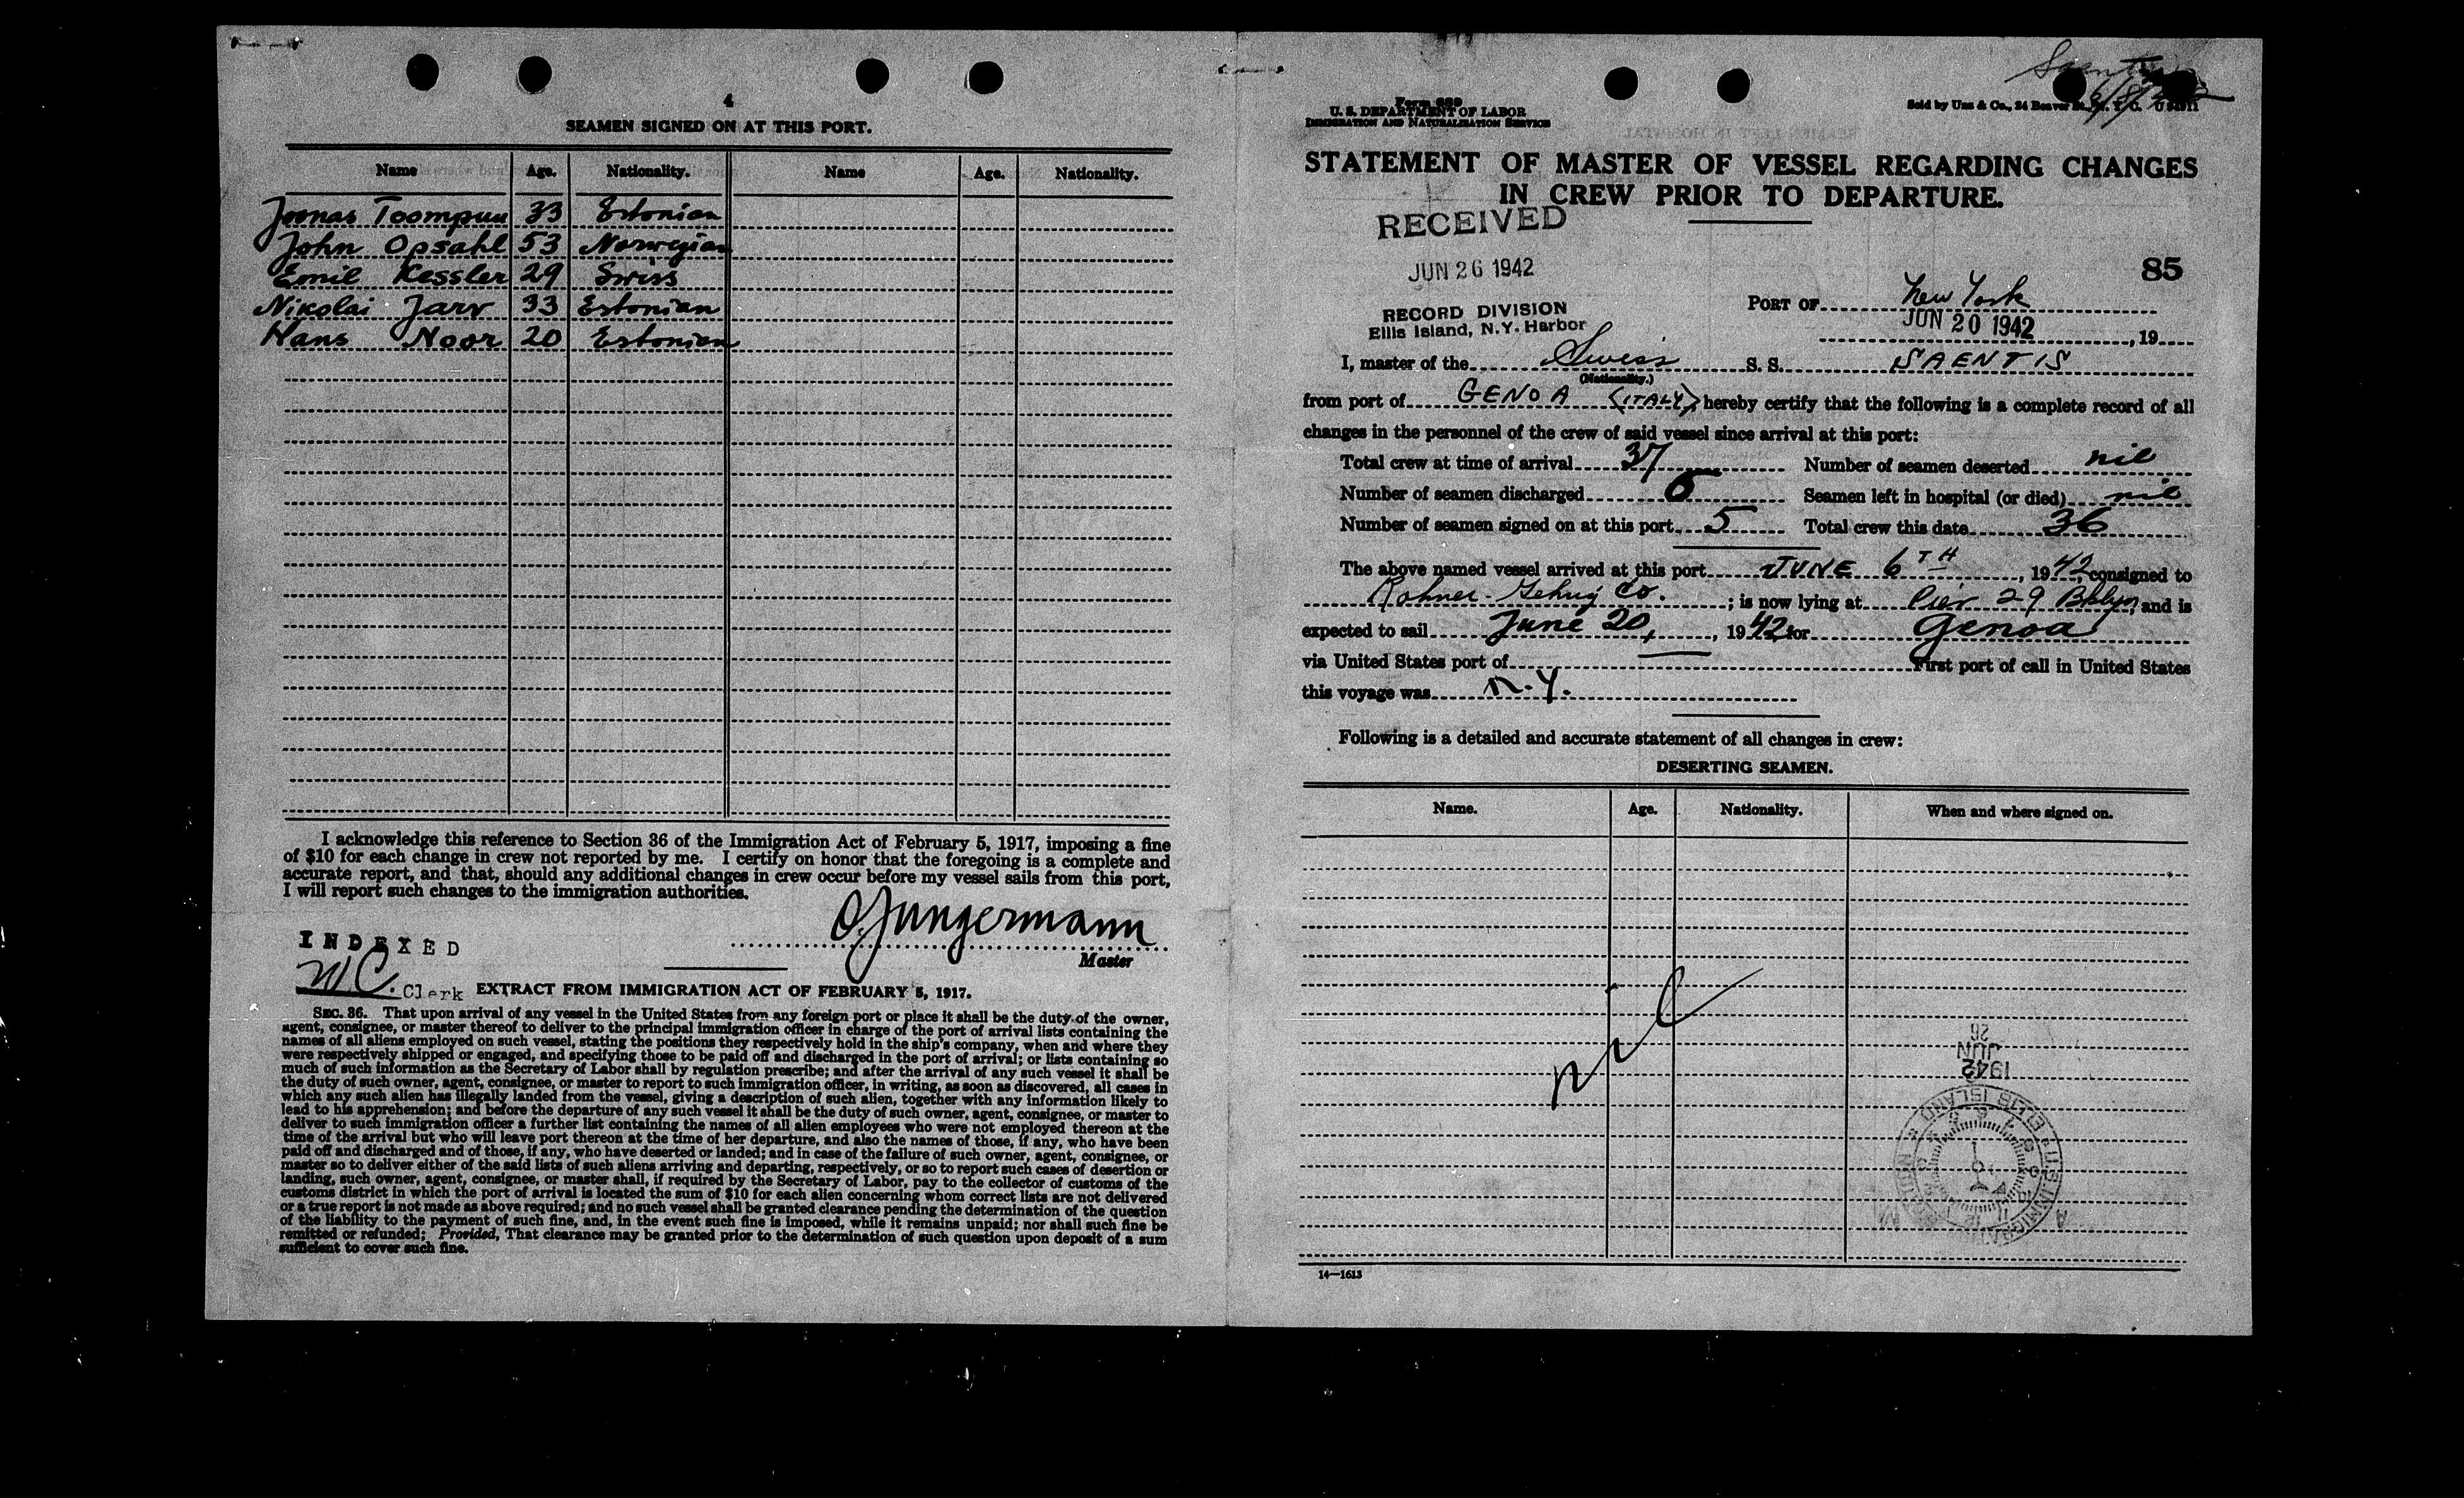 4
SEAMEN SIGNED ON AT THIS PORT.
Name Age. Nationality. Name Age. Nationality.
Joonas Toompuu 33 Estonian
John Opsahl 53 Norwegian
Emil Kessler 29 Swiss
Nikolai Jarv 33 Estonian
Hans Noor 20 Estonian
I acknowledge this reference to Section 36 of the Immigration Act of February 5, 1917, imposing a fine
of $10 for each change in crew not reported by me. I certify on honor that the foregoing is a complete and
accurate report, and that, should any additional changes in crew occur before my vessel sails from this port,
I will report such changes to the immigration authorities.
O. Jungermann
Master
INDEXED
W.C. Clerk
EXTRACT FROM IMMIGRATION ACT OF FEBRUARY 5, 1917.
SEC. 36. That upon arrival of any vessel in the United States from any foreign port or place it shall be the duty of the owner,
agent, consignee, or master thereof to deliver to the principal immigration officer in charge of the port of arrival lists containing the
names of all aliens employed on such vessel, stating the positions they respectively hold in the ship's company, when and where they
were respectively shipped or engaged, and specifying those to be paid off and discharged in the port of arrival; or lists containing so
much of such information as the Secretary of Labor shall by regulation prescribe; and after the arrival of any such vessel it shall be
the duty of such owner, agent, consignee, or master to report to such immigration officer, in writing, as soon as discovered, all cases in
which any such alien has illegally landed from the vessel, giving a description of such alien, together with any information likely to
lead to his apprehension; and before the departure of any such vessel it shall be the duty of such owner, agent, consignee, or master to
deliver to such immigration officer a further list containing the names of all alien employees who were not employed thereon at the
time of the arrival but who will leave port thereon at the time of her departure, and also the names of those, if any, who have been
paid off and discharged and of those, if any, who have deserted or landed; and in case of the failure of such owner, agent, consignee, or
master so to deliver either of the said lists of such aliens arriving and departing, respectively, or so to report such cases of desertion or
landing, such owner, agent, consignee, or master shall, if required by the Secretary of Labor, pay to the collector of customs of the
customs district in which the port of arrival is located the sum of $10 for each alien concerning whom correct lists are not delivered
or a true report is not made as above required; and no such vessel shall be granted clearance pending the determination of the question
of the liability to the payment of such fine, and, in the event such fine is imposed, while it remains unpaid; nor shall such fine be
remitted or refunded; Provided, That clearance may be granted prior to the determination of such question upon deposit of a sum
sufficient to cover such fine.
Form 689
U. S. DEPARTMENT OF LABOR
IMMIGRATION AND NATURALIZATION SERVICE
Sold by Unz & Co., 24 Beaver St., N. Y. C.
STATEMENT OF MASTER OF VESSEL REGARDING CHANGES
IN CREW PRIOR TO DEPARTURE.
RECEIVED
JUN 26 1942
RECORD DIVISION
Ellis Island, N.Y. Harbor
85
PORT OF New York
JUN 20 1942, 19
I, master of the Swiss S. S. SAENTIS
(Nationality.)
from port of GENOA (ITALY), hereby certify that the following is a complete record of all
changes in the personnel of the crew of said vessel since arrival at this port:
Total crew at time of arrival 37 Number of seamen deserted nil
Number of seamen discharged 6 Seamen left in hospital (or died) nil
Number of seamen signed on at this port 5 Total crew this date 36
The above named vessel arrived at this port JUNE 6TH, 1942, consigned to
Rohner-Gehrig Co.; is now lying at Pier 29 Bklyn, and is
expected to sail June 20, 1942 for Genoa
via United States port of — First port of call in United States
this voyage was N.Y.
Following is a detailed and accurate statement of all changes in crew:
DESERTING SEAMEN.
Name. Age. Nationality. When and where signed on.
nil
1942
JUN
26
U S IMMIGRATION
ELLIS ISLAND
14—1613